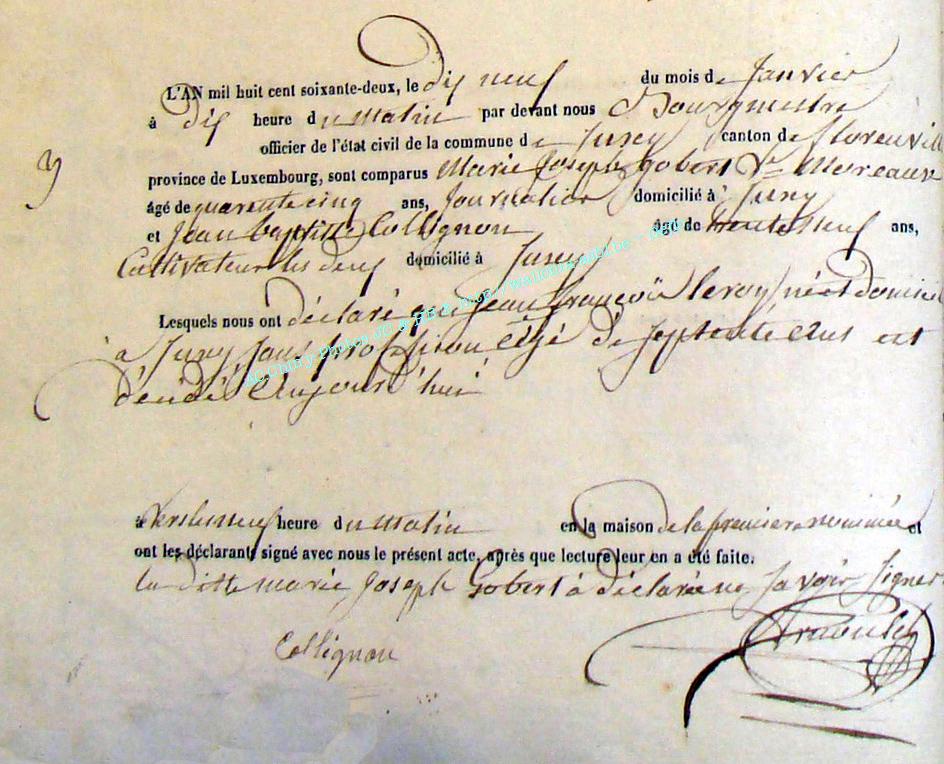 L'AN mil huit cent soixante-deux, le dix neuf du mois de Janvier
à dix heure du matin par devant nous Bourgmestre
officier de l'état civil de la commune de Jusey canton de Florenvill
province de Luxembourg, sont comparus Marie Joseph gobert Ve Moreaux
3
âgé de quarente cinq ans, Journalier domicilié à Jusey
et Jean baptiste Collignon âgé de trente neuf ans,
Cultivateur les deux domicilié à Jusey
Lesquels nous ont déclaré que Jean françois leroy né et domici
à Jusey sans profession âgé de septente ans est
décédé Aujourd'hui
à vers les neuf heure du matin en la maison de la premiere nommée et
ont les déclarants signé avec nous le présent acte, après que lecture leur en a été faite.
la ditte marie Joseph Gobert à déclaré ne savoir signer
Collignon